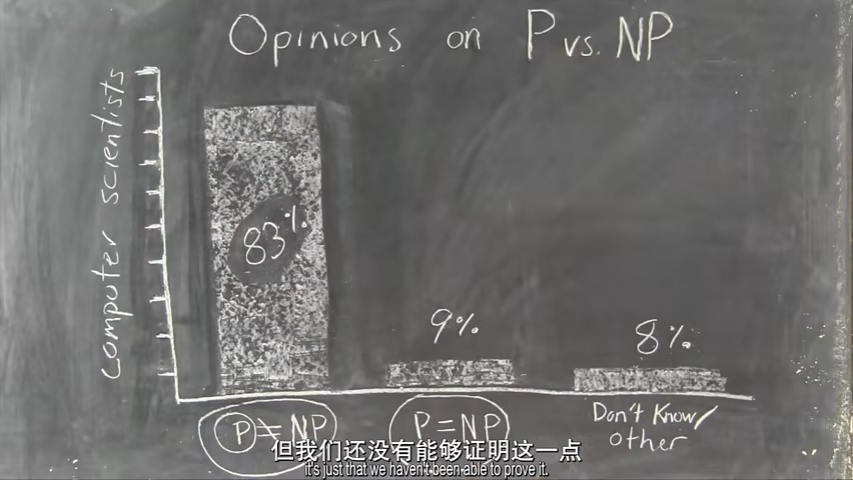 Opinions on P vs. NP
computer scientists
83%
9%
8%
P≠NP
P=NP
Don't Know/
other
但我们还没有能够证明这一点
it's just that we haven't been able to prove it.